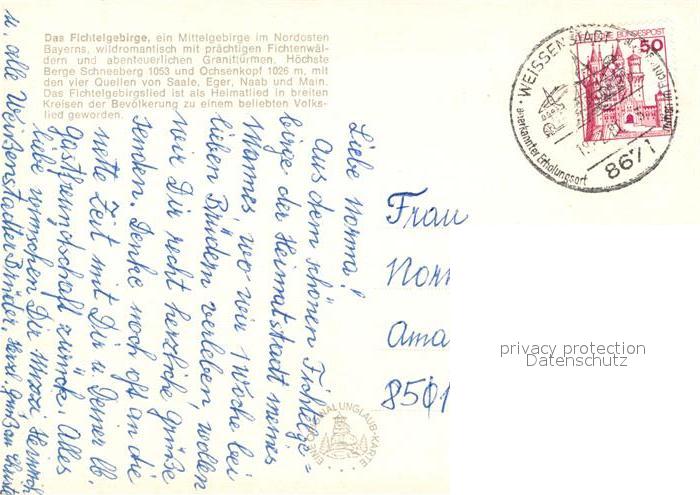 Das Fichtelgebirge, ein Mittelgebirge im Nordosten
Bayerns, wildromantisch mit prächtigen Fichtenwäl-
dern und abenteuerlichen Granittürmen. Höchste
Berge Schneeberg 1053 und Ochsenkopf 1026 m, mit
den vier Quellen von Saale, Eger, Naab und Main.
Das Fichtelgebirgslied ist als Heimatlied in breiten
Kreisen der Bevölkerung zu einem beliebten Volks-
lied geworden.
Liebe Norma!
Aus dem schönen Fichtelge=
birge der Heimatstadt meines
Mannes, wo wir 1 Woche bei
lieben Brüdern verleben, wollen
wir Dir recht herzliche Grüße
senden. Denke noch oft an die
nette Zeit mit Dir u. Deiner lb.
Gastfreundschaft zurück. Alles
liebe wünschen Dir Heinrich
u. alle Weißenstadter Brüder, herzl. Grüßen
DEUTSCHE BUNDESPOST
50
WEISSENSTADT
anerkannter Erholungsort
8671
Frau
Nor
Ama
8501
EINE OSWALUNGLAUB-KARTE
privacy protection
Datenschutz